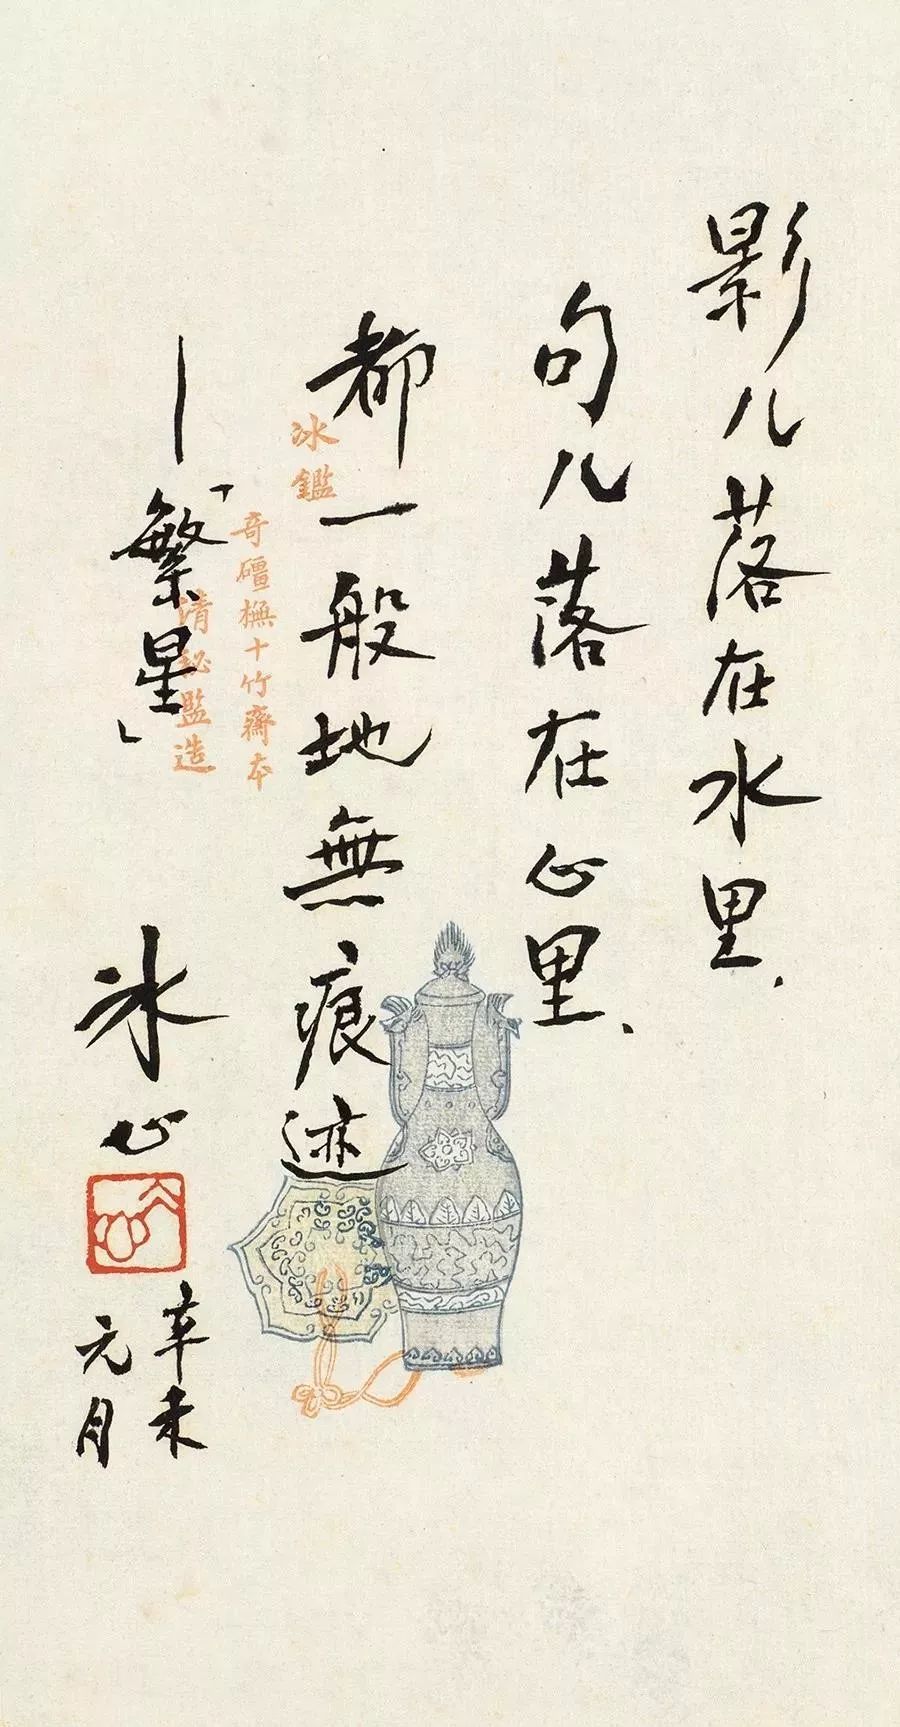 影儿落在水里、
句儿落在心里、
都一般地無痕迹
—「繁星」
冰心
辛未
元月
冰鑑
奇礓橅十竹齋本
清祕監造